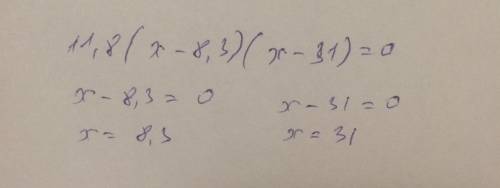 11,8(x-8,3)(x-31)=0
x-8,3=0 x-31=0
x=8,3 x=31